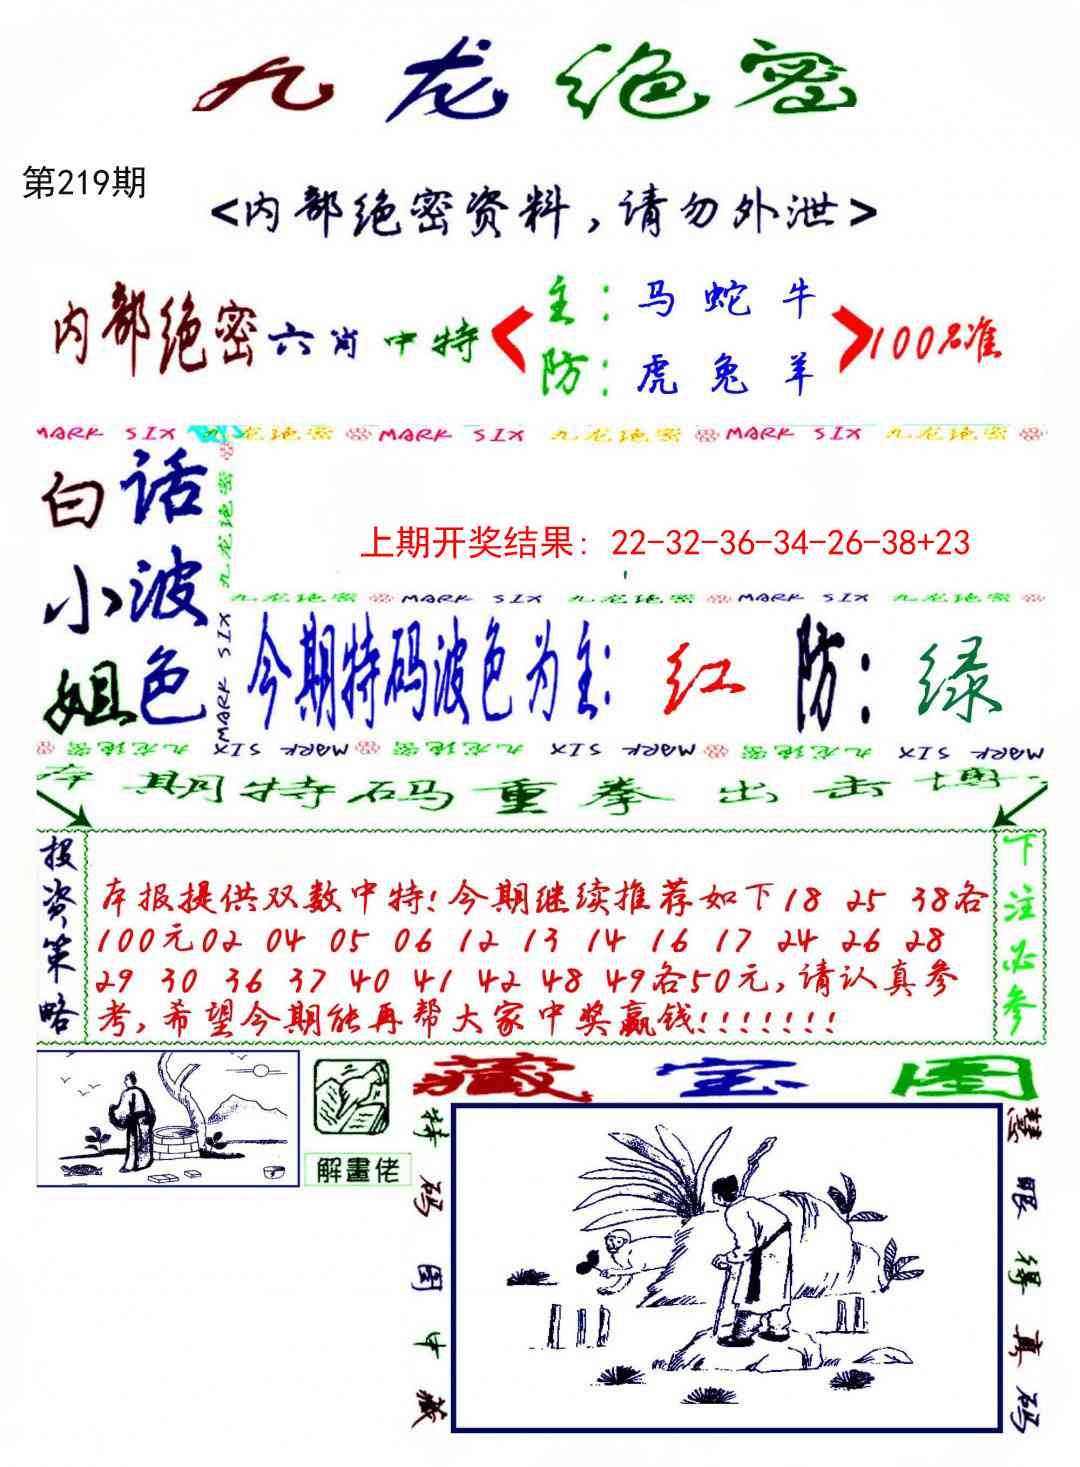 九龙绝密
第219期
<内部绝密资料,请勿外泄>
内部绝密六肖中特
主:马蛇牛
防:虎兔羊
100%准
MARK SIX 九龙绝密 MARK SIX 九龙绝密 MARK SIX 九龙绝密
白小姐
话波色
九龙绝密
MARK SIX
上期开奖结果: 22-32-36-34-26-38+23
九龙绝密 MARK SIX 九龙绝密 MARK SIX 九龙绝密
今期特码波色为主: 红 防: 绿
九龙绝密 MARK SIX 九龙绝密 MARK SIX 九龙绝密 MARK SIX
本期特码重拳出击博
投资策略
本报提供双数中特!今期继续推荐如下18 25 38各
100元02 04 05 06 12 13 14 16 17 24 26 28
29 30 36 37 40 41 42 48 49各50元,请认真参
考,希望今期能再帮大家中奖赢钱!!!!!!!
下注必参
解畫佬
藏宝图
特码图中藏
慧眼得真码